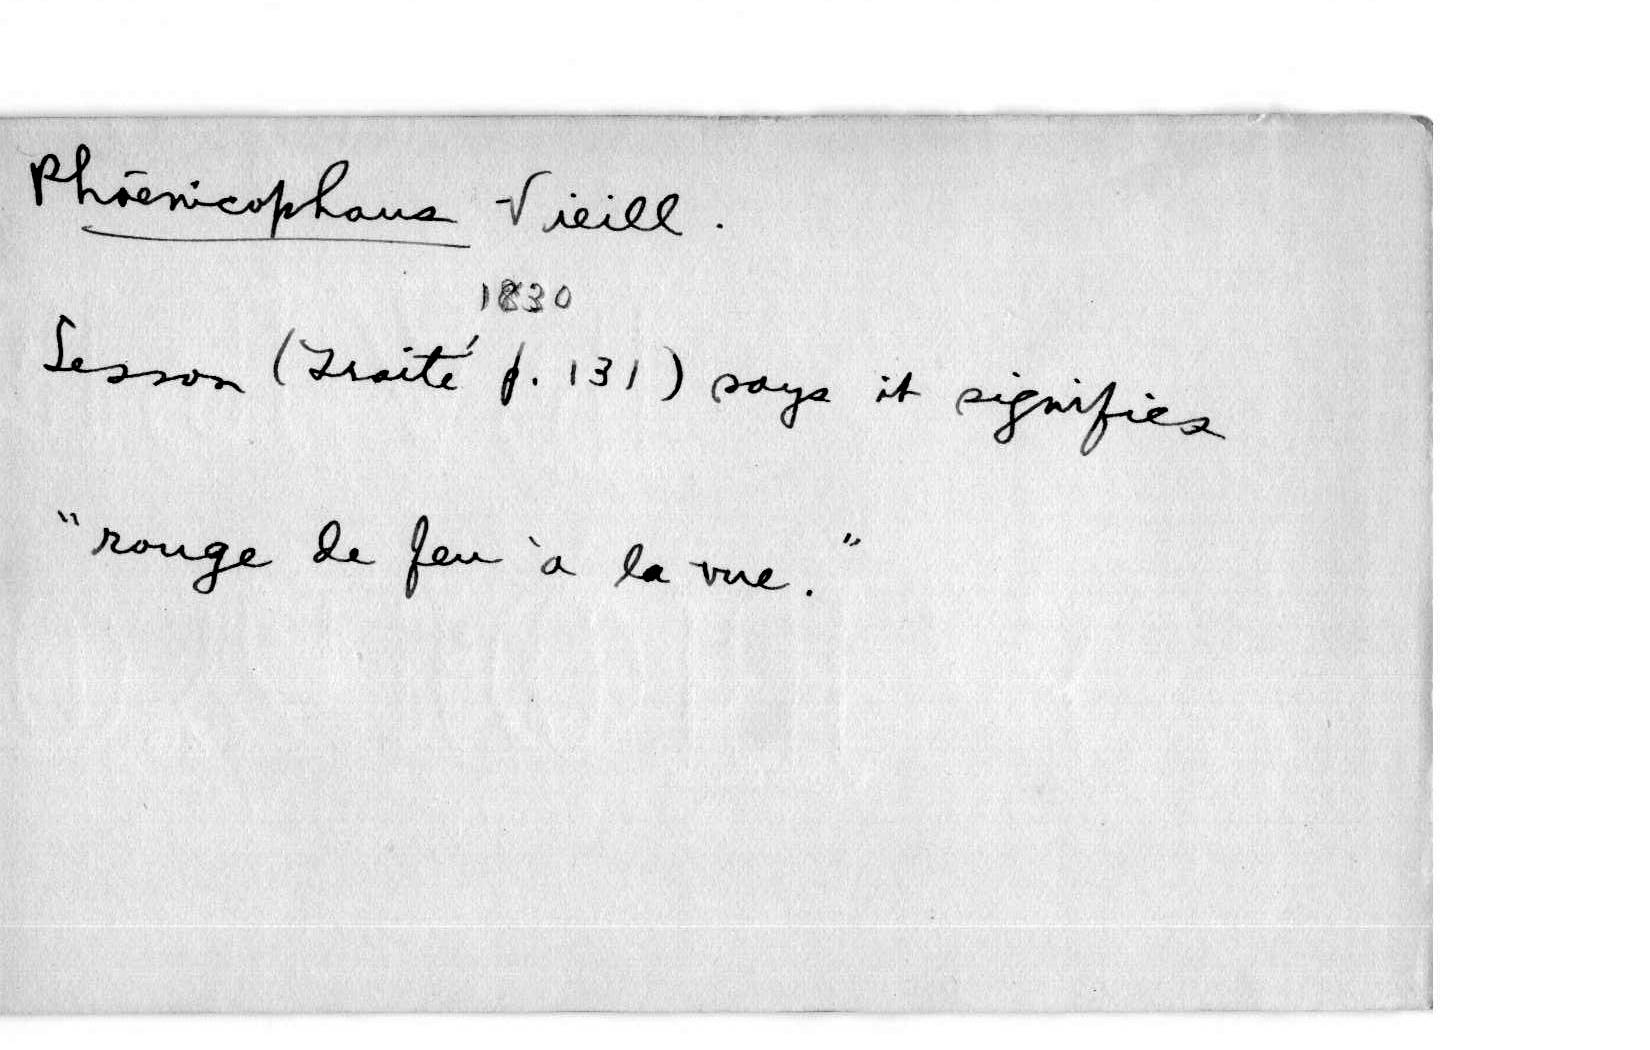 Phöenicophaus Vieill.
1830
Lesson (Traité p. 131) says it signifies
"rouge de feu à la vue."